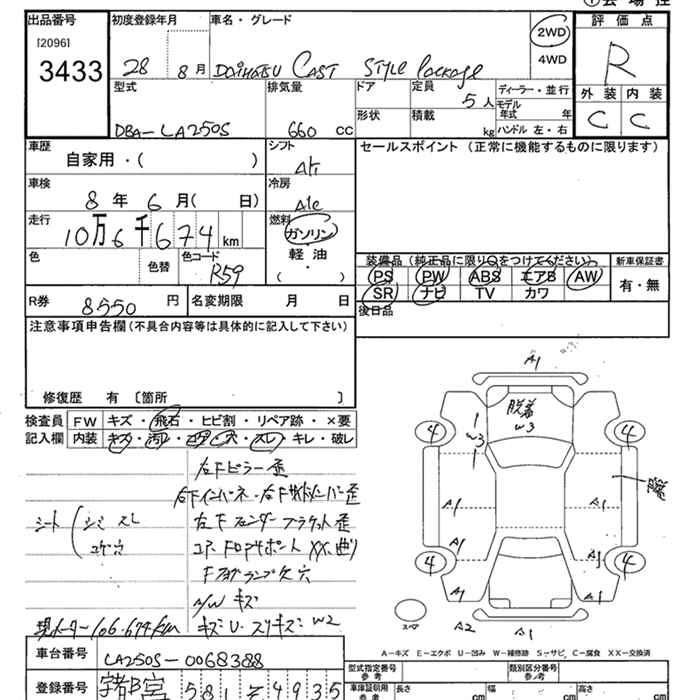 出品番号 初度登録年月 車名・グレード
[2096]
3433
28 8月 DAIHATSU CAST STYLE Package
2WD
4WD
評価点
R
外装 内装
C C
型式 排気量 ドア 定員 5人 ディーラー・並行
DBA-LA250S 660 CC 形状 積載 kg
モデル年式 年
ハンドル 左・右
車歴 シフト セールスポイント (正常に機能するものに限ります)
自家用・( )
車検 冷房
8年 6月( 日)
走行 燃料
10万6千674km
ガソリン
軽油
・
( )
色 色替 色コード
R59
装備品 (純正品に限り○をつけてください) 新車保証書
PS PW ABS エアB AW
SR ナビ TV カワ
有・無
R券 8550円 名変期限 月 日
後日品
注意事項申告欄(不具合内容等は具体的に記入して下さい)
修復歴 有 〔箇所 〕
検査員 FW キズ・飛石・ヒビ割・リペア跡・×要
記入欄 内装 キズ・汚レ・コゲ・穴・スレ・キレ・破レ
右Fピラー歪
シート シミ スレ
コゲ穴
左Fフェンダーブラケット歪
Fフォグランプ欠 穴
A/W キズ
現メーター106.674km
車台番号 LA250S-0068388
登録番号 581 4935
A1
脱着
W3
W3
4 4
A1 A1
A1 A1
4 4
A1 A1
スペア
A2 A1
A-キズ E-エクボ U-凹み W-補修跡 S-サビ C-腐食 XX-交換済
型式指定番号 類別区分番号
参考 参考
車庫証明用 長さ 幅 高さ
参考 cm cm cm